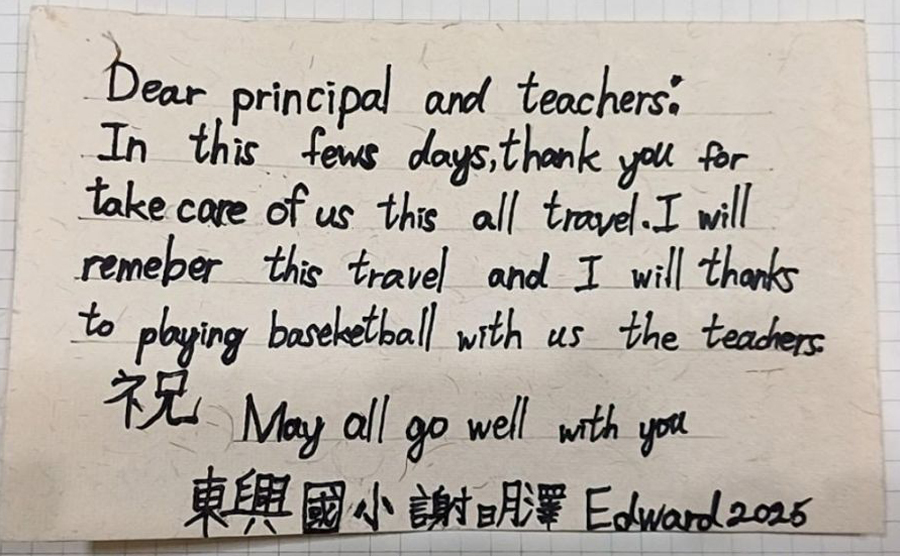 Dear principal and teachers:
In this fews days,thank you for
take care of us this all travel.I will
remeber this travel and I will thanks
to playing baseketball with us the teachers.
祝 May all go well with you
東興國小 謝明澤 Edward 2025